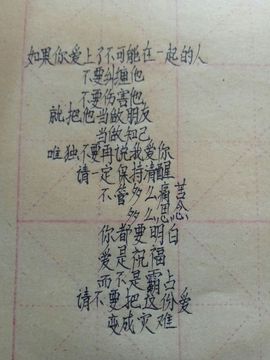 如果你爱上了不可能在一起的人
不要纠缠他
不要伤害他
就把他当做朋友
当做知己
唯独不要再说我爱你
请一定保持清醒
不管多么痛苦
多么思念
你都要明白
爱是祝福
而不是霸占
请不要把这份爱
变成灾难